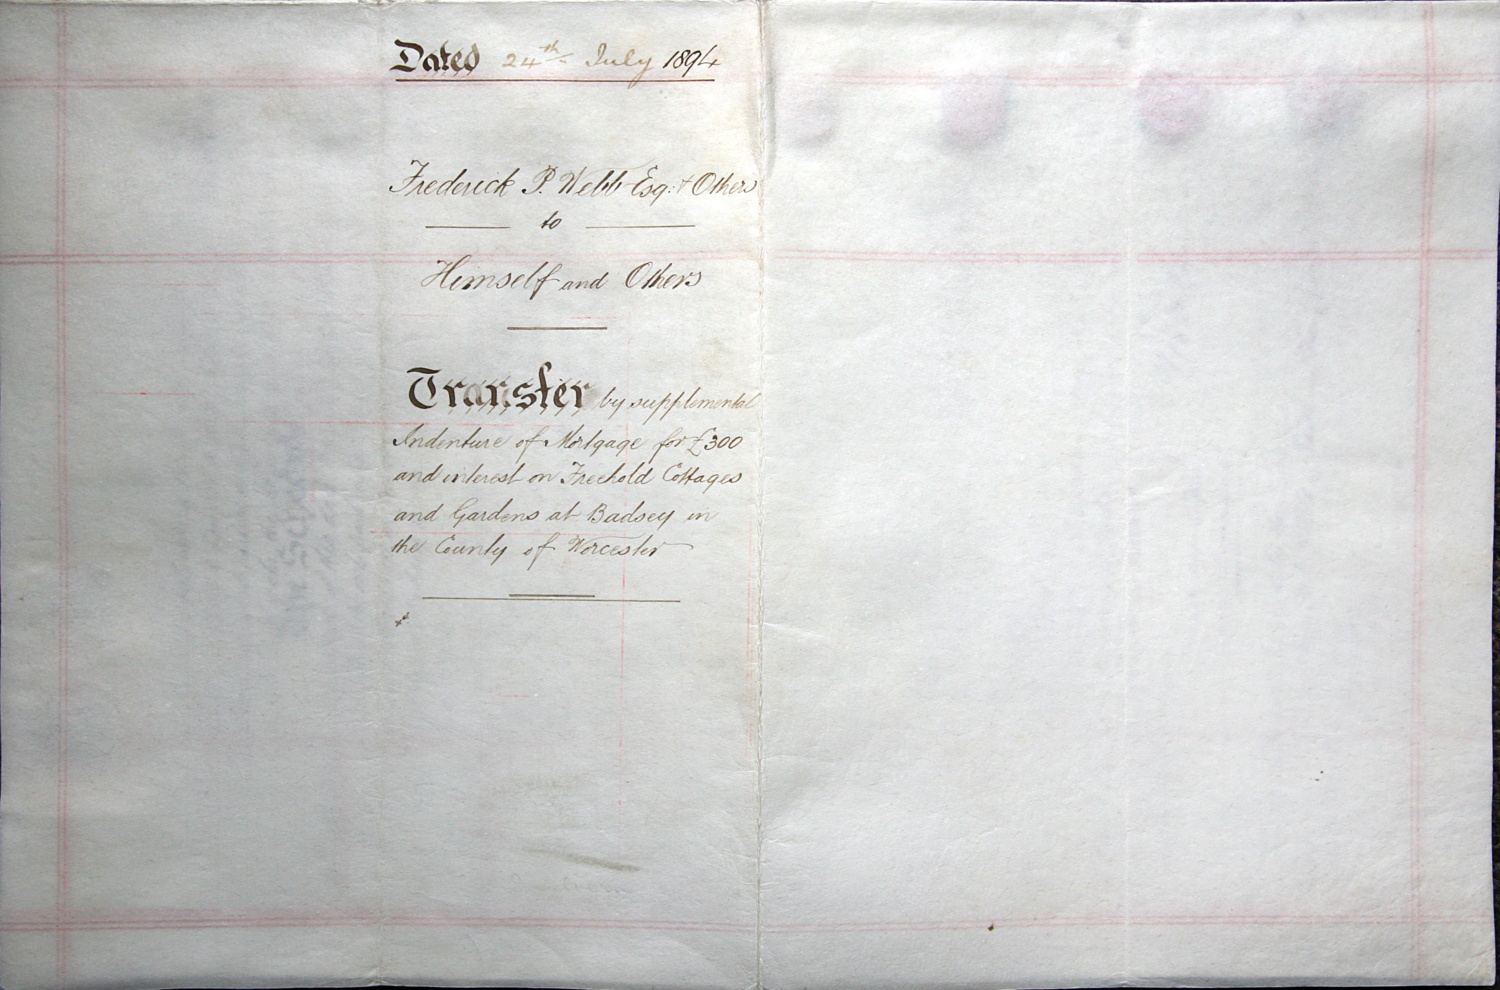 Dated 24th July 1894
Frederick P. Webb Esq: & Others
to
Himself and Others
Transfer by supplemental
Indenture of Mortgage for £300
and interest on Freehold Cottages
and Gardens at Badsey in
the County of Worcester